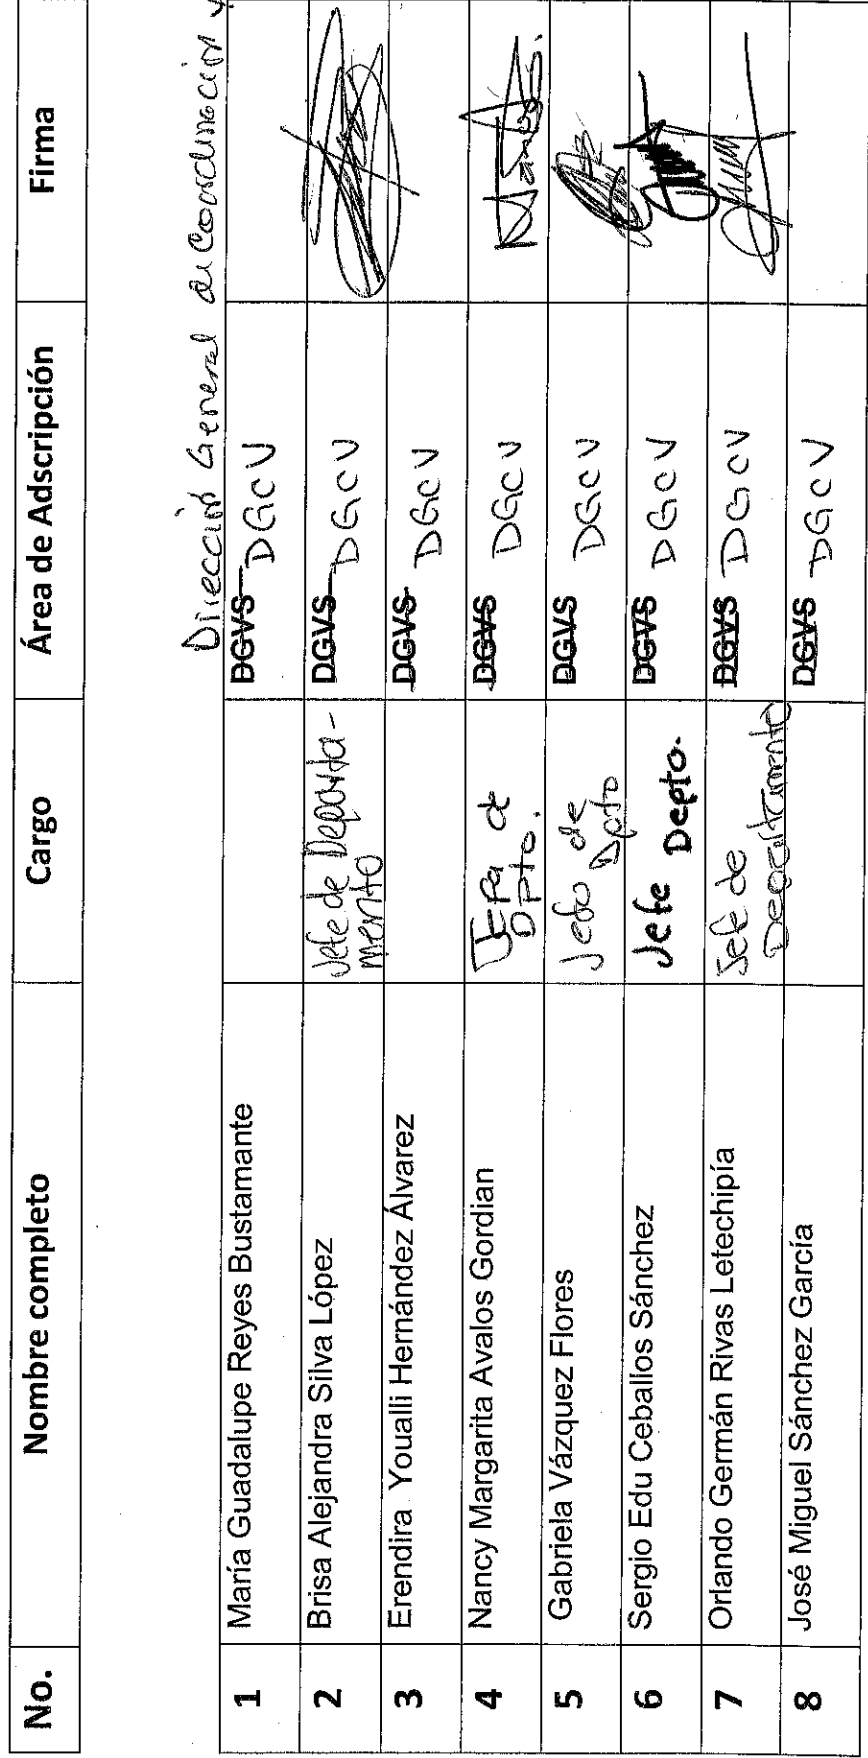 No. Nombre completo Cargo Área de Adscripción Firma
Dirección General de Coordinación y
1 María Guadalupe Reyes Bustamante DGVS DGCV
2 Brisa Alejandra Silva López Jefe de Departa-
mento DGVS DGCV
3 Erendira Youalli Hernández Álvarez DGVS DGCV
4 Nancy Margarita Avalos Gordian Jefa de
Dpto. DGVS DGCV
5 Gabriela Vázquez Flores Jefo de
Dpto DGVS DGCV
6 Sergio Edu Ceballos Sánchez Jefe Depto. DGVS DGCV
7 Orlando Germán Rivas Letechipía Jefe de
Departamento DGVS DGCV
8 José Miguel Sánchez García DGVS DGCV